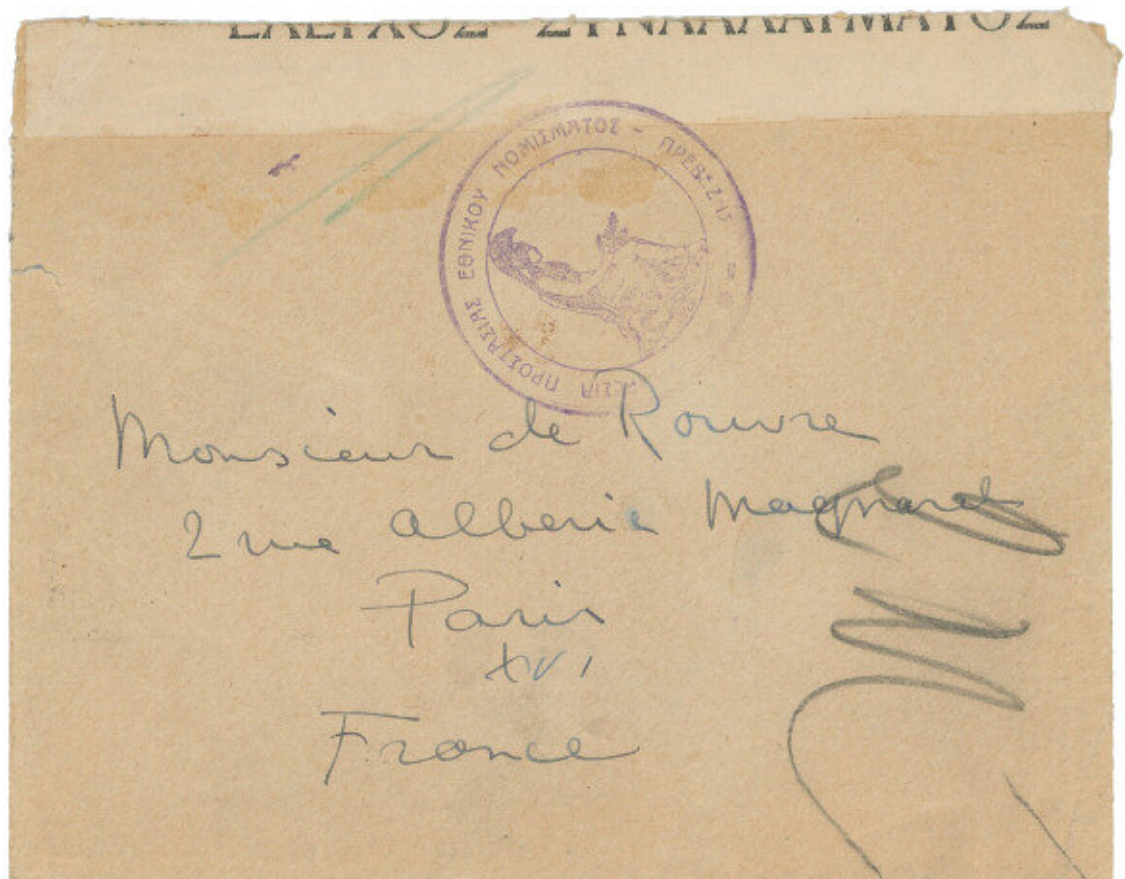 ΕΛΕΓΧΟΣ ΣΥΝΑΛΛΑΓΜΑΤΟΣ
ΠΡΟΣΤΑΣΙΑΣ ΕΘΝΙΚΟΥ ΝΟΜΙΣΜΑΤΟΣ -
Monsieur de Rouvre
2 rue Alberic Magnard
Paris
XVI
France